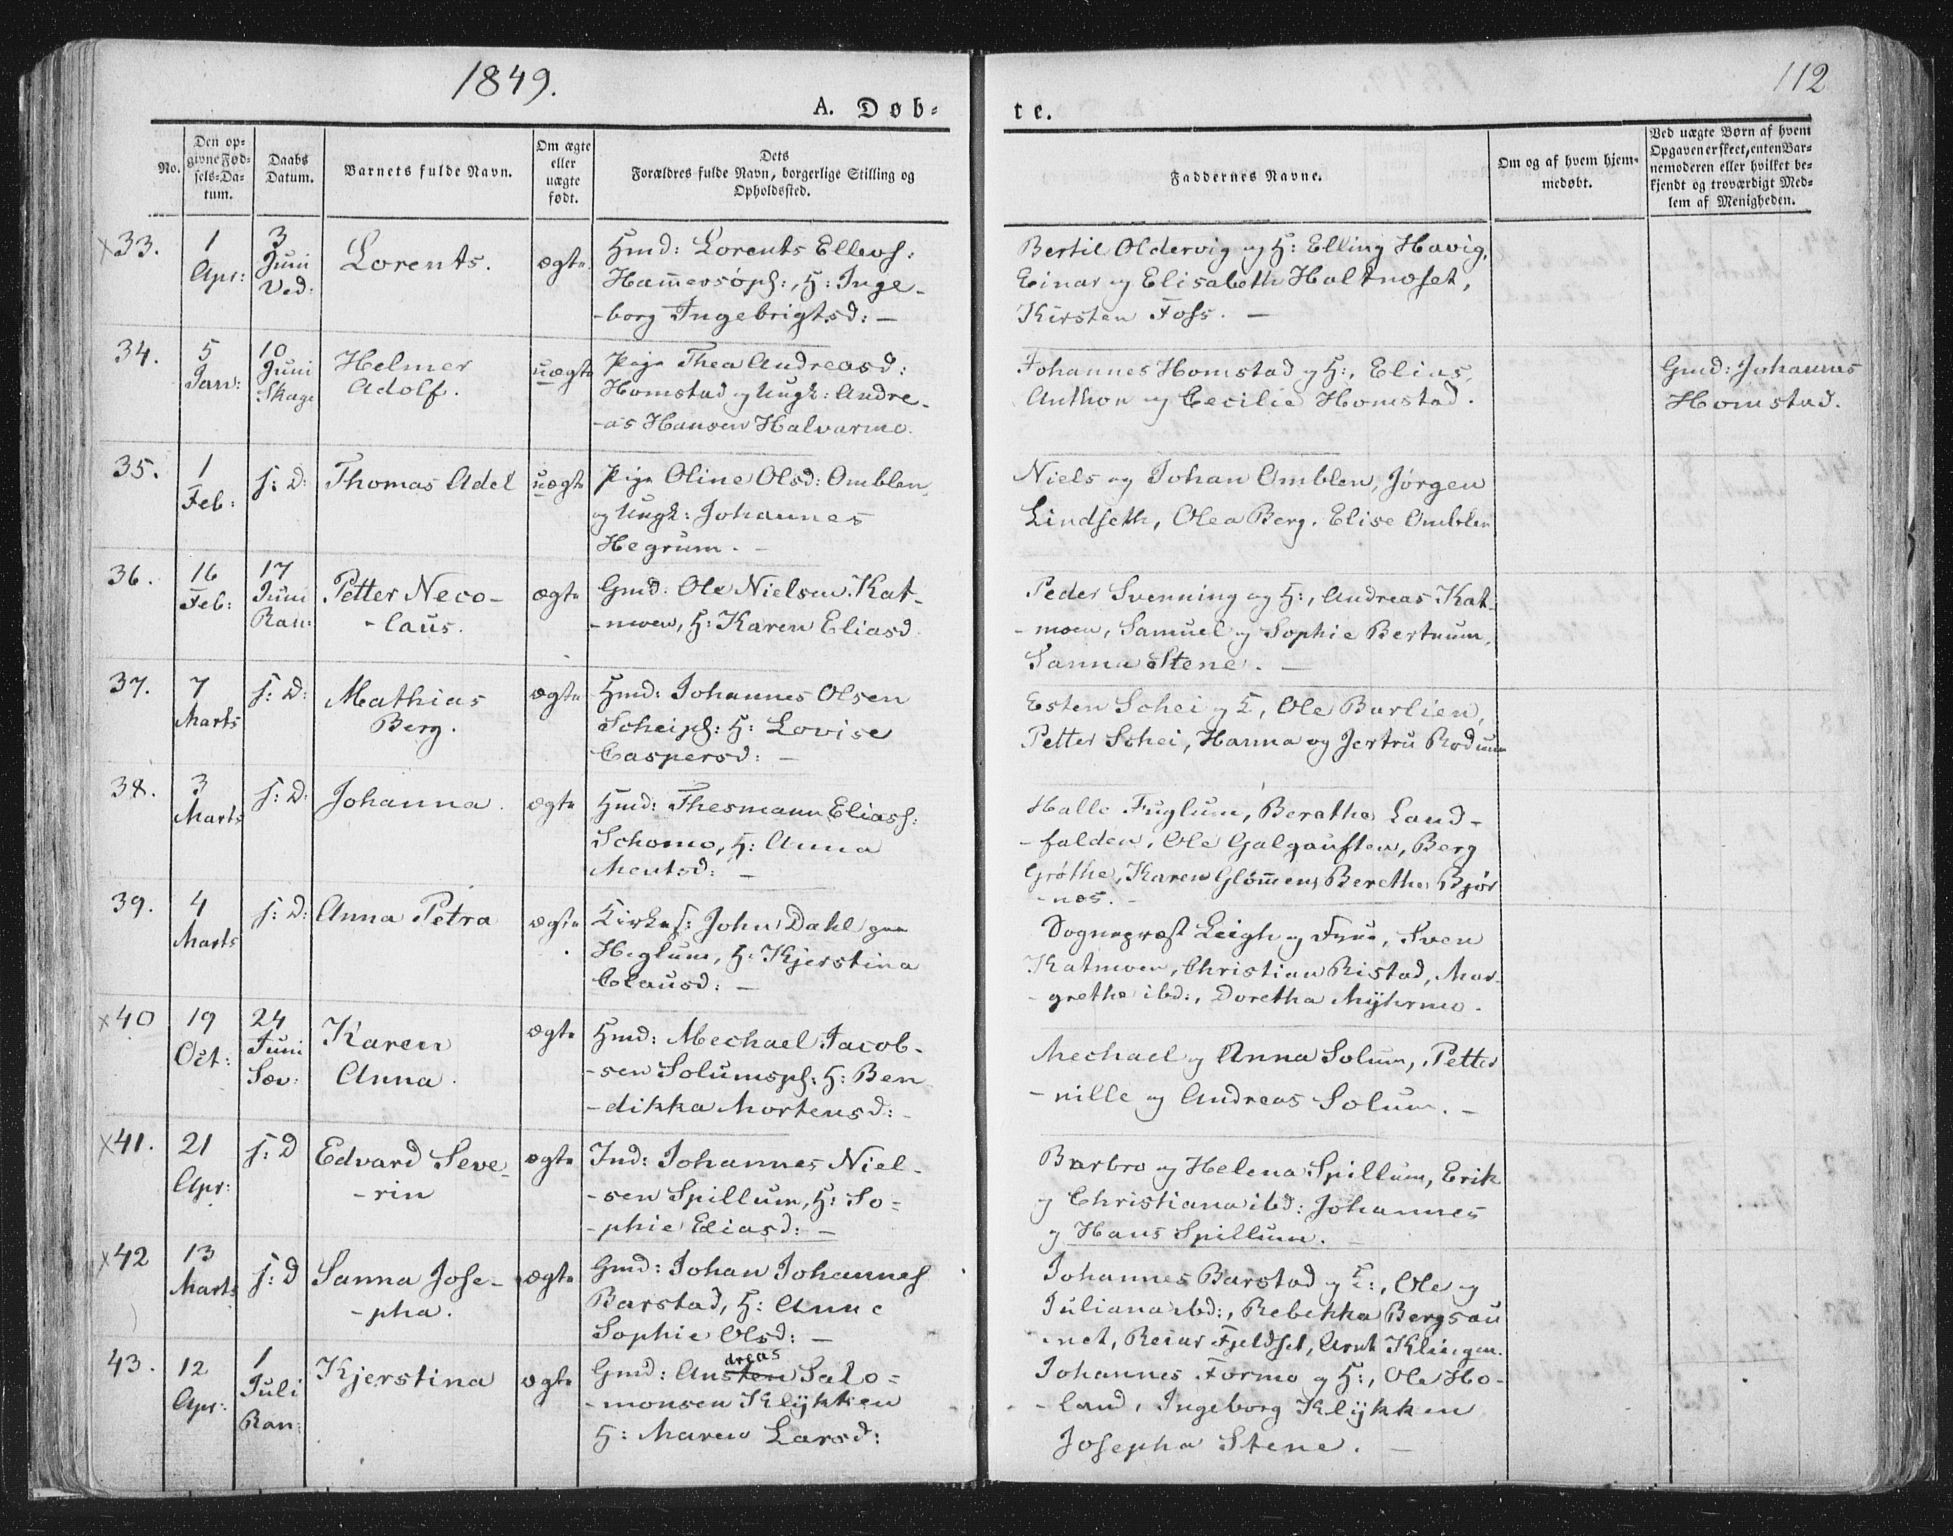 1849.
112
A. Døb=
te.
No.
Den op=
givne Fød=
sels=Da=
tum.
Daabs
Datum.
Barnets fulde Navn.
Om ægte
eller
uægte
født.
Dets
Forældres fulde Navn, borgerlige Stilling og
Opholdssted.
Faddernes Navne.
Om og af hvem hjem=
medøbt.
Ved uægte Børn af hvem
Opgaven er skeet, enten Bar=
nemoderen eller hvilket be=
kjendt og troværdigt Med=
lem af Menigheden.
x33.
1
Apr:
3
Juni
Ved:
Lorents.
ægte
Hmd: Lorents Ellevs:
Hamersøpl:, H: Inge-
-borg Ingebrigtsd: -
Bertil Oldervig og H: Elling Havig,
Einar og Elisabeth Haltnæset,
Kirsten Foss. -
34.
5
Jan:
10
Juni
Skage
Helmer
Adolf.
uægte
Pige Thea Andreasd:
Homstad og Ungk: Andre-
-as Hansen Halvarmo.
Johannes Homstad og H:, Elias,
Anthon og Cecilie Homstad.
Gmd: Johannes
Homstad.
35.
1
Feb:
s: D:
Thomas Adel
uægte
Pige Oline Olsd: Omblen,
og Ungk: Johannes
Hegrum. -
Niels og Johan Omblen, Jørgen
Lindseth, Olea Berg. Elise Omblen
36.
16
Feb:
17
Juni
Ran:
Petter Neco-
-laus.
ægte
Gmd: Ole Nielsen Kat-
-moen, H: Karen Eliasd.
Peder Svenning og H:, Andreas Kat-
-moen, Samuel og Sophie Bertnum,
Sanna Stene. -
37.
7
Marts
s: D:
Mathias
Berg.
ægte
Hmd: Johannes Olsen
Scheipl: H: Lovise
Caspersd: -
Esten Schei og H, Ole Barlien,
Petter Schei, Hanna og Jertru Rodum
38.
3
Marts
s: D:
Johanna.
ægte
Hmd: Thesmann Eliass:
Schomo, H: Anna
Mentsd: -
Halle Fuglum, Berethe Land-
-falden, Ole Galgauften, Berg
Grøthe, Karen Glømmen, Berethe Bjør
-nes. -
39.
4
Marts
s: D:
Anna Petra
ægte
Kirkes: John Dahl paa
Heglum, H: Kjerstina
Clausd: -
Sognepræst Leigh og Frue, Sven
Katmoen, Christian Ristad, Mar-
-grethe ibd:, Doretha Myhrmo.
x40
19
Oct:
24
Juni
Sæv:
Karen
Anna.
ægte
Hmd: Mechael Jacob-
-sen Solumspl: H: Ben
-dikka Mortensd: -
Mechael og Anna Solum, Petter
-nille og Andreas Solum. -
x41.
21
Apr:
s: D
Edvard Seve-
-rin
ægte
Ind: Johannes Niel-
-sen Spillum, H: So-
-phie Eliasd: -
Barbro og Helena Spillum, Erik
og Christiana ibd: Johannes
og Hans Spillum.
x42
13
Marts
s: D
Sanna Jose-
-pha.
ægte
Gmd: Johan Johannes
Barstad, H: Anne
Sophie Olsd: -
Johannes Barstad og H:, Ole og
Juliana ibd:, Rebekka Bergsau
-net, Reiar Fjeldset, Arnt Klingen.
43.
12
Apr:
1
Juli
Ran:
Kjerstina
ægte
dreas
Gmd: Ansten Salo-
-monsen Klykken
H: Maren Larsd:
Johannes Formo og H:, Ole Ho-
-land, Ingeborg Klykken
Josepha Stene. -